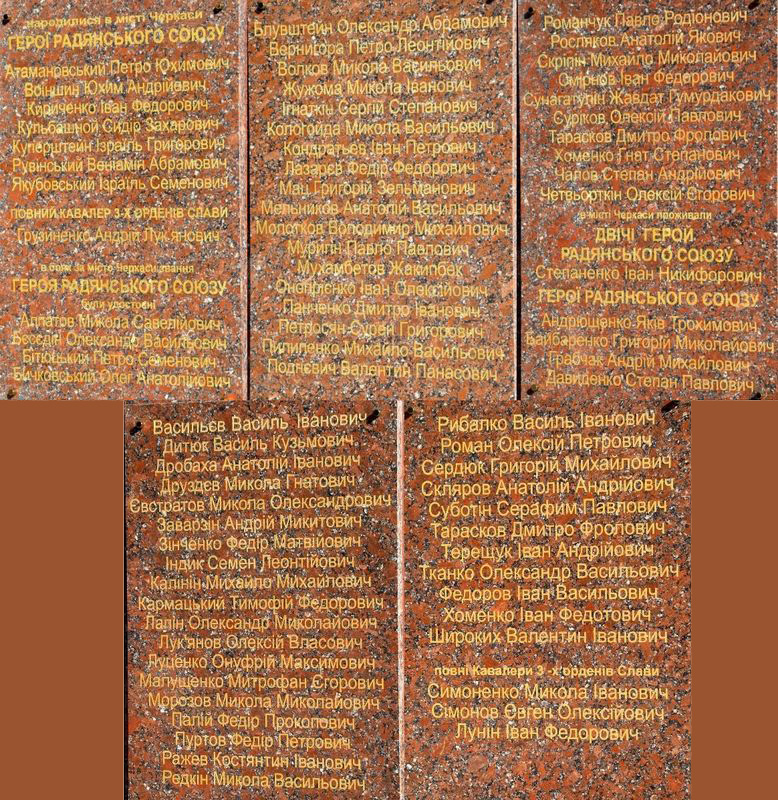 народилися в місті Черкаси
ГЕРОЇ РАДЯНСЬКОГО СОЮЗУ
Атамановський Петро Юхимович
Воїншин Юхим Андрійович
Кириченко Іван Федорович
Кульбашной Сидір Захарович
Куперштейн Ізраїль Григорович
Рувінський Веніамін Абрамович
Якубовський Ізраїль Семенович
ПОВНИЙ КАВАЛЕР 3-Х ОРДЕНІВ СЛАВИ
Грузиненко Андрій Лук'янович
в боях за місто Черкаси звання
ГЕРОЯ РАДЯНСЬКОГО СОЮЗУ
були удостоєні
Алпатов Микола Савелійович
Бєсєдін Олександр Васильович
Бітюцький Петро Семенович
Бичковський Олег Анатолійович
Блувштейн Олександр Абрамович
Вернигора Петро Леонтійович
Волков Микола Васильович
Жужома Микола Іванович
Ігнаткін Сергій Степанович
Кологойда Микола Васильович
Кондратьєв Іван Петрович
Лазарєв Федір Федорович
Мац Григорій Зельманович
Мельников Анатолій Васильович
Молотков Володимир Михайлович
Муригін Павло Павлович
Мухамбетов Жакипбек
Онопрієнко Іван Олексійович
Панченко Дмитро Іванович
Петросян Сурен Григорович
Пилипенко Михайло Васильович
Поднєвич Валентин Панасович
Романчук Павло Родіонович
Росляков Анатолій Якович
Скріпін Михайло Миколайович
Смірнов Іван Федорович
Сунагатулін Жавдат Гумурдакович
Суріков Олексій Павлович
Тарасков Дмитро Фролович
Хоменко Гнат Степанович
Чалов Степан Андрійович
Четвьорткін Олексій Єгорович
в місті Черкаси проживали
ДВІЧІ ГЕРОЙ
РАДЯНСЬКОГО СОЮЗУ
Степаненко Іван Никифорович
ГЕРОЇ РАДЯНСЬКОГО СОЮЗУ
Андрющенко Яків Трохимович
Байбаренко Григорій Миколайович
Грабчак Андрій Михайлович
Давиденко Степан Павлович
Васильєв Василь Іванович
Дитюк Василь Кузьмович
Дробаха Анатолій Іванович
Друздєв Микола Гнатович
Євотратов Микола Олександрович
Заварзін Андрій Микитович
Зінченко Федір Матвійович
Індик Семен Леонтійович
Калінін Михайло Михайлович
Кармацький Тимофій Федорович
Лапін Олександр Миколайович
Лук'янов Олексій Власович
Луценко Онуфрій Максимович
Мапущенко Митрофан Єгорович
Морозов Микола Миколайович
Палій Федір Прокопович
Пуртов Федір Петрович
Ражев Костянтин Іванович
Редкін Микола Васильович
Рибалко Василь Іванович
Роман Олексій Петрович
Сердюк Григорій Михайлович
Скляров Анатолій Андрійович
Суботін Серафим Павлович
Тарасков Дмитро Фролович
Терещук Іван Андрійович
Тканко Олександр Васильович
Федоров Іван Васильович
Хоменко Іван Федотович
Широких Валентин Іванович
повні Кавалери 3-х орденів Слави
Симоненко Микола Іванович
Сімонов Євген Олексійович
Лунін Іван Федорович